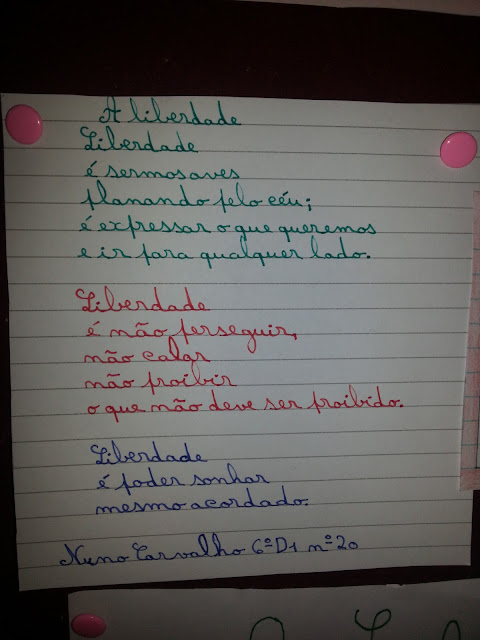 A liberdade
Liberdade
é sermos aves
planando pelo céu;
é expressar o que queremos
e ir para qualquer lado.
Liberdade
é não perseguir,
não calar
não proibir
o que não deve ser proibido.
Liberdade
é poder sonhar
mesmo acordado.
Nuno Carvalho 6ºD1 nº20